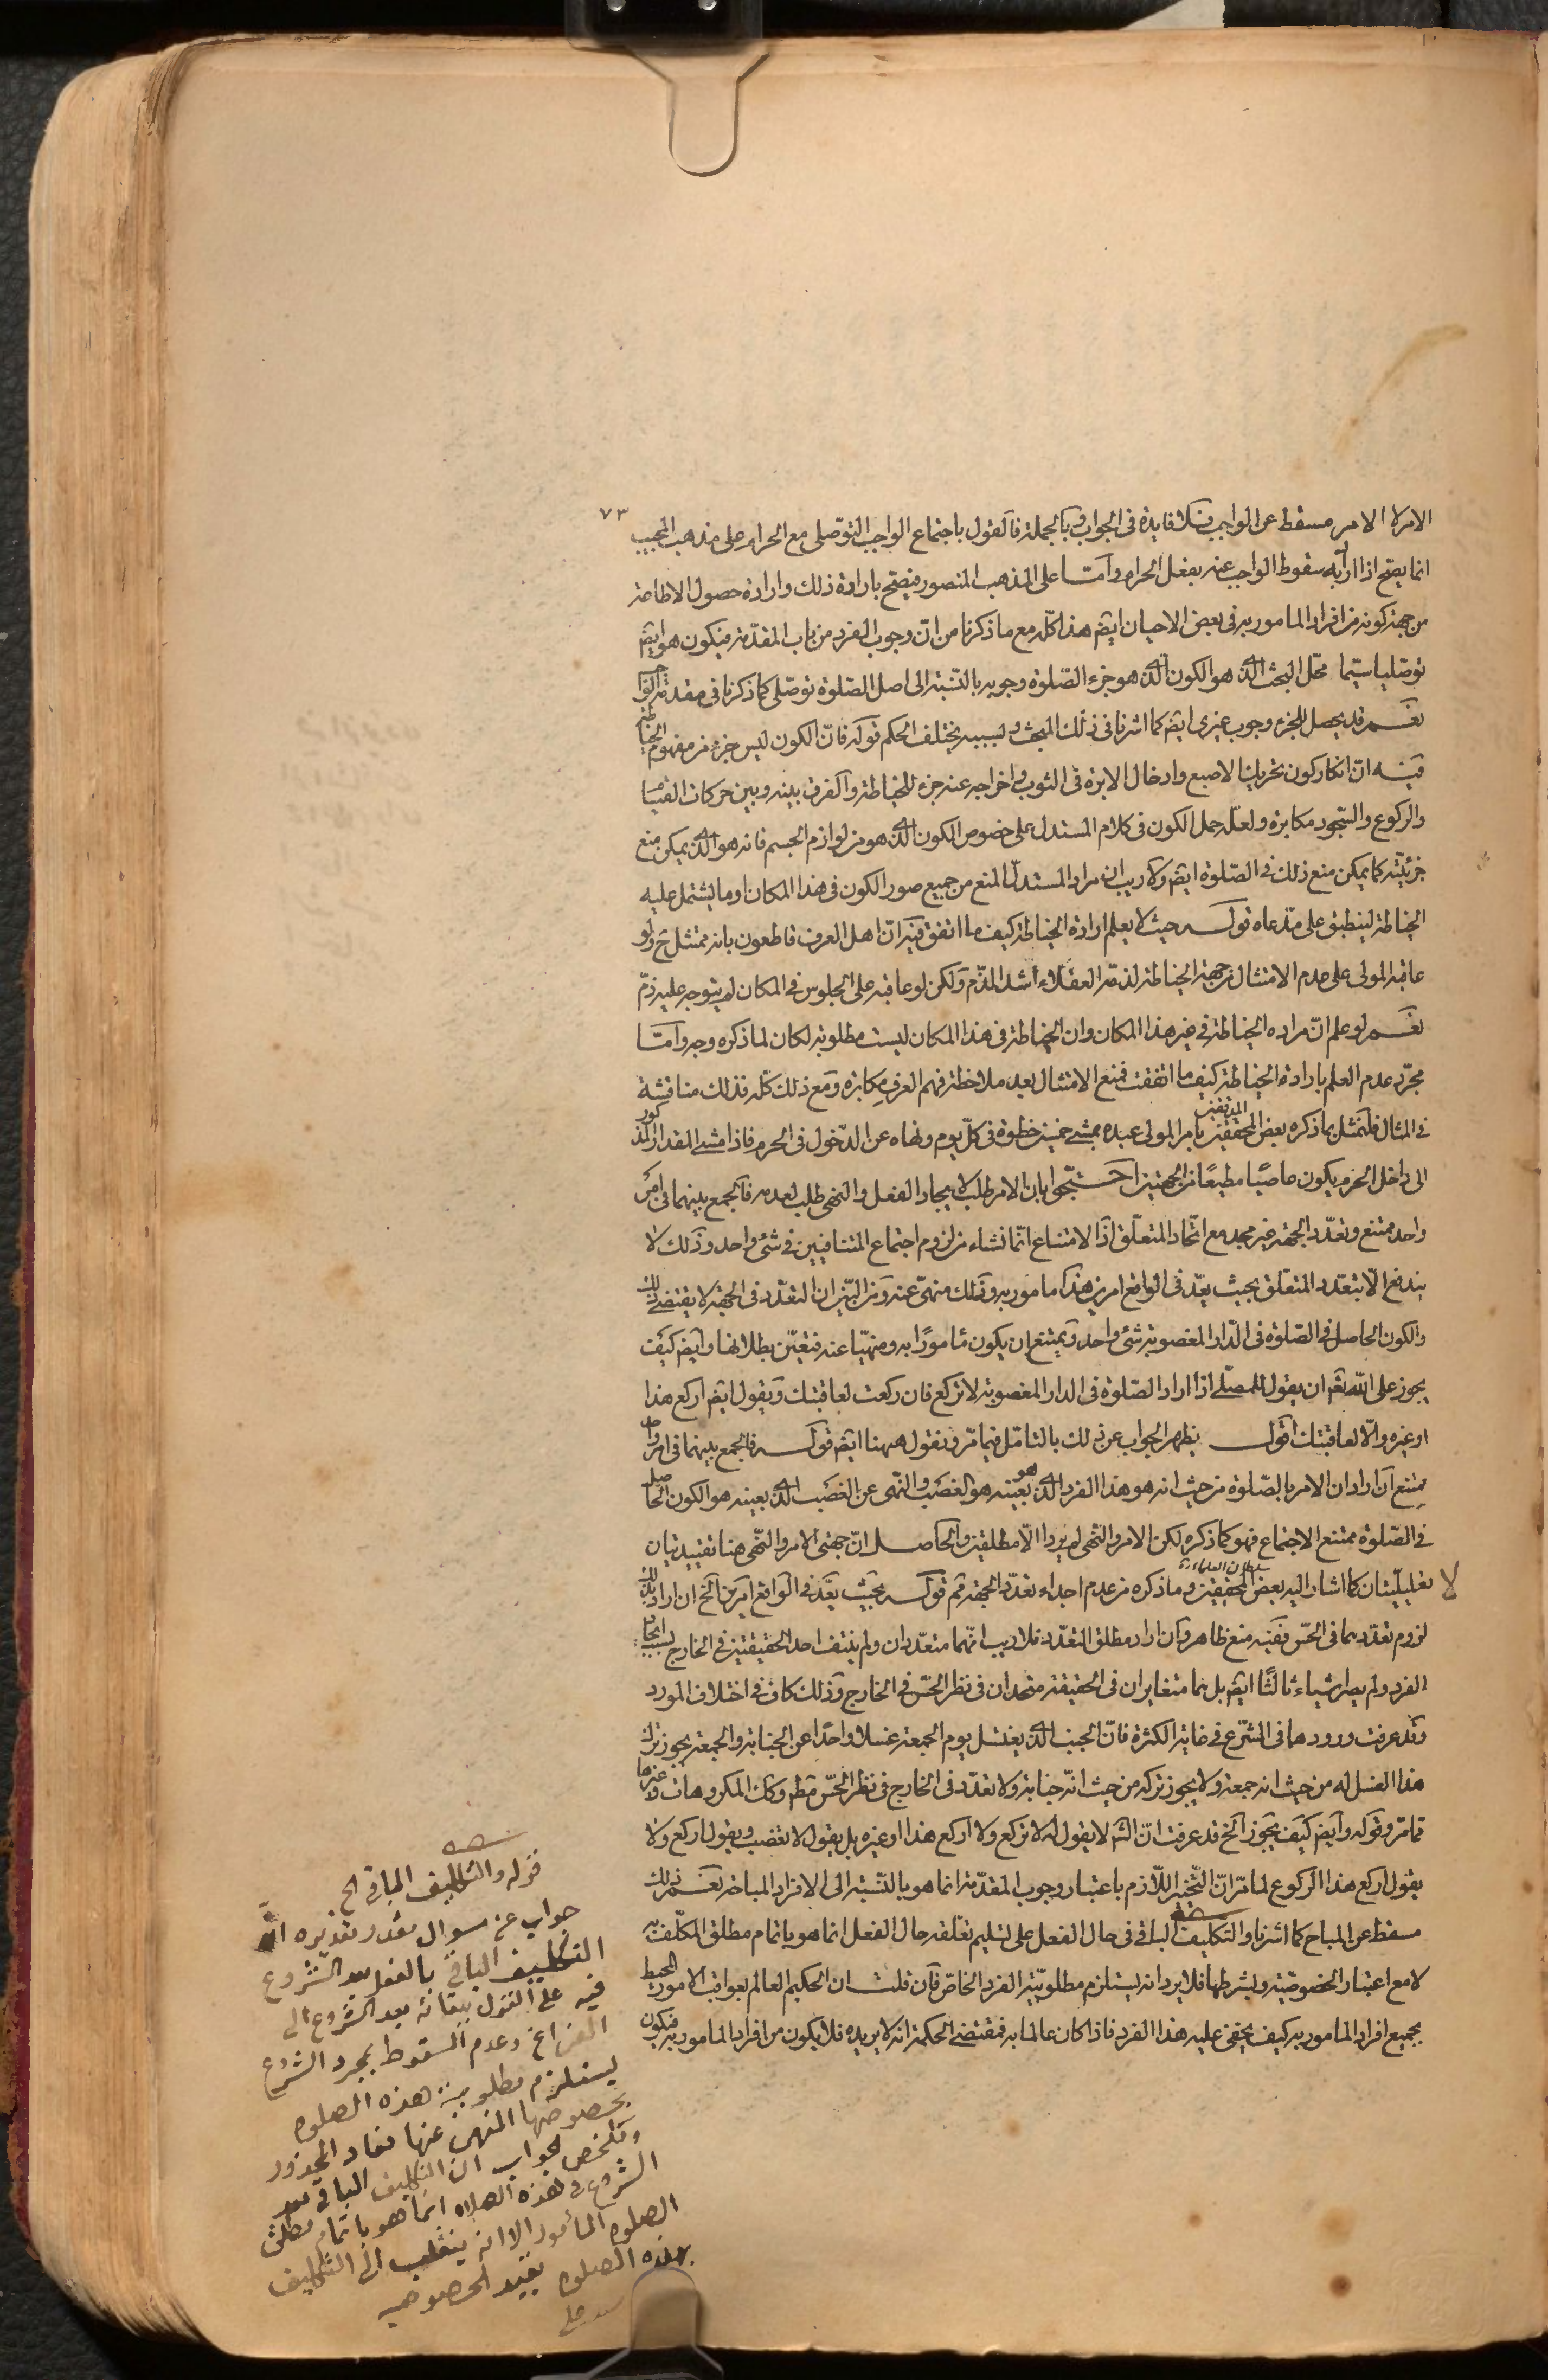 ٧٣
الامر لا الامر مسقط عن الواجب فلا فايدة فى الجواب وبالجملة فالقول باجتماع الواجب التوصلى مع الحرام على مذهب المجيب
انما يصح اذا اراد به سقوط الواجب عنه بفعل الحرام وامّا على المذهب المنصور فيصح بارادة ذلك وارادة حصول الاطاعة
من جهة كونه من افراد المامور به فى بعض الاحيان ايضا هذا كلّه مع ما ذكرنا من انّ وجوب الفرد من باب المقدّمة فيكون هو ايضا
توصّليا سيّما محلّ البحث الذى هو الكون الذى هو جزء الصّلوة وجوبه بالنّسبة الى اصل الصّلوة توصّلى كما ذكرنا فى مقدمة الواجب
نعم قد يحصل للجزء وجوب غيرى ايضا كما اشرنا فى ذلك المبحث وبسببه يختلف الحكم قوله فانّ الكون ليس جزء من مفهوم الخياطة
فيه انّ انكار كون تحريك الاصبع وادخال الابرة فى الثوب واخراجه عنه جزء للخياطة والفرق بينه وبين حركات القيام
والركوع والسّجود مكابرة ولعلّه حمل الكون فى كلام المستدل على خصوص الكون الذى هو من لوازم الجسم فانه هو الذى يمكن منع
جزئيّته كما يمكن منع ذلك فى الصّلوة ايضا ولا ريب ان مراد المستدلّ المنع من جميع صور الكون فى هذا المكان او ما يشتمل عليه
الخياطة لينطبق على مدّعاه قوله حيث لا يعلم ارادة الخياطة كيف ما اتفق فيه انّ اهل العرف قاطعون بانه ممتثل ح ولو
عاقبه المولى على عدم الامتثال من جهة الخياطة لذمّه العقلاء اشد الذّم ولكن لو عاقبه على الجلوس فى المكان لم يتوجه عليه ذمّ
نعم لو علم انّ مراده الخياطة فى غير هذا المكان وان الخياطة فى هذا المكان ليست مطلوبة لكان لما ذكره وجه وامّا
مجرّد عدم العلم بارادة الخياطة كيف ما اتفقت فمنع الامتثال بعد ملاحظة فهم العرف مكابرة ومع ذلك كلّه فذلك مناقشة
فى المثال فلنمثّل بما ذكره بعض المدققين المحققين بامر المولى عبده بمشى خمسين خطوة فى كلّ يوم ونهاه عن الدّخول فى الحرم فاذا مشى المقدار المذكور
الى داخل الحرم يكون عاصيًا مطيعًا من الجهتين احتجّوا بان الامر طلب لايجاد الفعل والنهى طلب لعدمه فالجمع بينهما فى امر
واحد ممتنع وتعدّد الجهة غير مجد مع اتّحاد المتعلّق اذ الامتناع انّما نشاء من لزوم اجتماع المتنافيين فى شئ واحد وذلك لا
يندفع الّا بتعدد المتعلّق بحيث يعدّ فى الواقع امرين هذا مامور به وذلك منهىّ عنه ومن البيّن ان التعدّد فى الجهة لا يقتضى ذلك
والكون الحاصل فى الصّلوة فى الدّار المغصوبة شئ واحد ويمتنع ان يكون مامورًا به ومنهيّا عنه فتعيّن بطلانها وايضا كيف
يجوز على الله تعالى ان يقول للمصلّى اذا اراد الصّلوة فى الدار المغصوبة لا تركع فان ركعت لعاقبتك ويقول ايضا اركع هذا
او غيره والّا لعاقبتك اقول يظهر الجواب عن ذلك بالتامّل فيما مرّ ونقول ههنا ايضا قوله فالجمع بينهما فى امر واحد
ممتنع ان اراد ان الامر بالصّلوة من حيث انه هو هذا الفرد الذى هو بعينه هو الغصب والنّهى عن الغصب الذى بعينه هو الكون الحاصل
فى الصّلوة ممتنع الاجتماع فهو كما ذكره لكن الامر والنّهى لم يردا الّا مطلقين والحاصل انّ جهتى الامر والنّهى هنا تقييديتان
لا تعليليّتان كما اشار اليه بعض المحققين سلطان العلماء وما ذكره من عدم اجداء تعدّد الجهة فم قوله بحيث يعدّ فى الواقع امرين الخ ان اراد بذلك
لزوم تعدّدهما فى الحسّ ففيه منع ظاهر وان اراد مطلق التعدّد فلا ريب انّهما متعدّدان ولم ينتف احد الحقيقتين فى الخارج بسبب اتحاد
الفرد ولم يصر شياء ثالثًا ايضا بل هما متغايران فى الحقيقة متحدان فى نظر الحسّ فى الخارج وذلك كاف فى اختلاف المورد
وقد عرفت ورودهما فى الشّرع فى غاية الكثرة فانّ الجنب الذى يغتسل يوم الجمعة غسلا واحدًا عن الجنابة والجمعة يجوز ترك
هذا الغسل له من حيث انه جمعة ولا يجوز تركه من حيث انّه جنابة ولا تعدّد فى الخارج فى نظر الحسّ قطعا وكذا المكروهات وغيرها
ممّا مرّ وقوله وايضا كيف يجوز الخ قد عرفت انّ الله لا يقول له لا تركع ولا اركع هذا او غيره بل يقول لا تغصب ويقول اركع ولا
يقول اركع هذا الركوع لما مرّ انّ التّخيير اللّازم باعتبار وجوب المقدّمة انما هو بالنّسبة الى الافراد المباحة نعم ذلك
مسقط عن المباح كما اشرنا والتكليف الباقى فى حال الفعل على تسليم تعلّقه حال الفعل انما هو باتمام مطلق المكلّف به
لا مع اعتبار الخصوصّية وبشرطها فلا يرد انه يستلزم مطلوبيّة الفرد الخاصّ فان قلت ان الحكيم العالم بعواقب الامور المحيط
بجميع افراد المامور به كيف يخفى عليه هذا الفرد فاذا كان عالما به فمقتضى الحكمة انه لا يريده فلا يكون من افراد المامور به فيكون
قوله والتكليف الباقى الخ
جواب عن سوال مقدر تقديره انّ
التكليف الباقى بالفعل بعد الشروع
فيه على القول ببقائه بعد الشروع الى
الفراغ وعدم السقوط بمجرد الشروع
يستلزم مطلوبية هذه الصلوه
بخصوصها المنهى عنها فعاد المحذور
وملخص الجواب ان التكليف الباقى بعد
الشروع فى هذه الصلاه انما هو باتمام مطلق
الصلوه المأمور الا انه ينقلب الى التكليف
بهذه الصلوه بقيد الخصوصيه